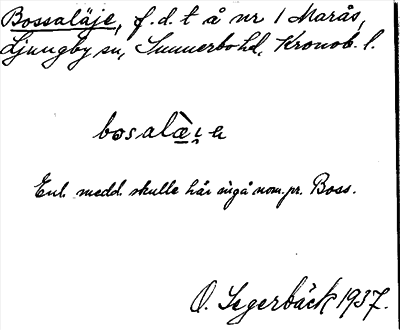 Bossaläje, f. d. t å nr 1 Marås,
Ljungby sn, Sunnerbo hd, Kronob. l.
Enl. medd. skulle här ingå nom. pr. Boss.
O. Segerbäck 1937.